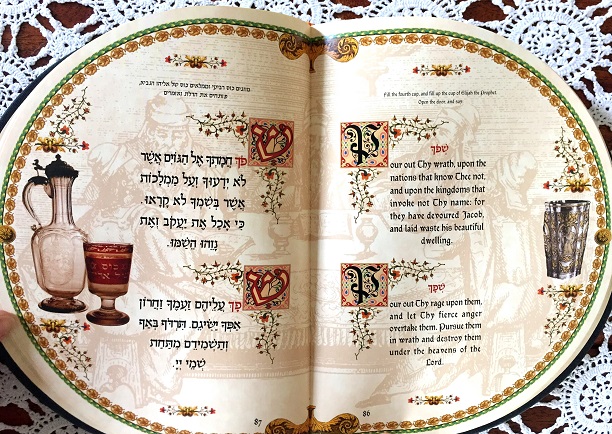 Fill the fourth cup, and fill up the cup of Elijah the Prophet.
Open the door, and say:
שְׁפֹךְ
Pour out Thy wrath, upon the
nations that know Thee not,
and upon the kingdoms that
invoke not Thy name: for
they have devoured Jacob,
and laid waste his beautiful
dwelling.
שְׁפָךְ
Pour out Thy rage upon them,
and let Thy fierce anger
overtake them. Pursue them
in wrath and destroy them
under the heavens of the
Lord.
86
מוזגים כוס רביעי וממלאים כוס של אליהו הנביא,
פותחים את הדלת ואומרים
שְׁפֹךְ חֲמָתְךָ אֶל הַגּוֹיִם אֲשֶׁר
לֹא יְדָעוּךָ וְעַל מַמְלָכוֹת
אֲשֶׁר בְּשִׁמְךָ לֹא קָרָאוּ.
כִּי אָכַל אֶת יַעֲקֹב וְאֶת
נָוֵהוּ הֵשַׁמּוּ.
שְׁפָךְ עֲלֵיהֶם זַעְמֶךָ וַחֲרוֹן
אַפְּךָ יַשִּׂיגֵם. תִּרְדֹּף בְּאַף
וְתַשְׁמִידֵם מִתַּחַת
שְׁמֵי יְיָ.
כוס
87